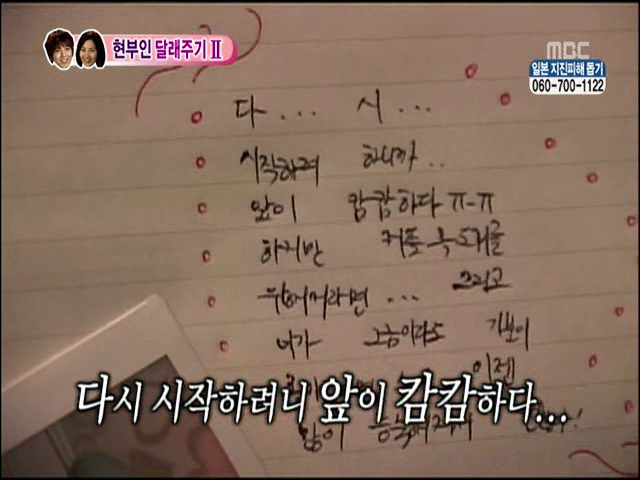 현부인 달래주기 Ⅱ
MBC
일본 지진피해 돕기
060-700-1122
다... 시...
시작하려 하니까..
앞이 캄캄하다 ㅠ-ㅠ
하지만 커플
위해서라면... 그리고
너가 조금이라도 기분이
이젠
다시 시작하려니 앞이 캄캄하다...
많이